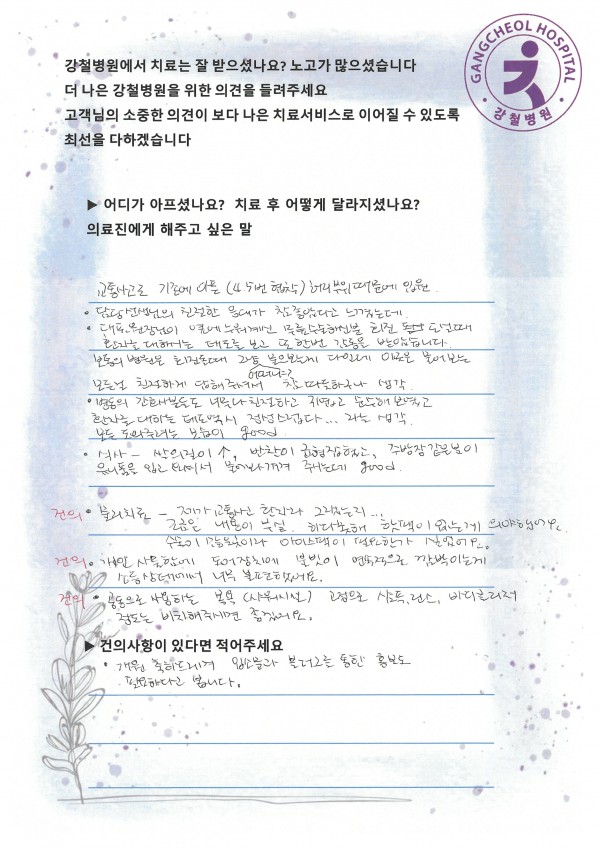 GANGCHEOL HOSPITAL
강철병원
강철병원에서 치료는 잘 받으셨나요? 노고가 많으셨습니다
더 나은 강철병원을 위한 의견을 들려주세요
고객님의 소중한 의견이 보다 나은 치료서비스로 이어질 수 있도록
최선을 다하겠습니다
▶ 어디가 아프셨나요? 치료 후 어떻게 달라지셨나요?
의료진에게 해주고 싶은 말
교통사고로 기존에 아픈 (4.5번 협착) 허리부위때문에 입원.
• 담당선생님의 친절한 응대가 참 좋았다고 느꼈는데.
• 대표원장님이 옆에 누워계신 수술하신분 회진 도실때
환자를 대하는 태도를 보고 또 한번 감동을 받았습니다.
보통의 병원은 회진돌때
어떠냐?
모든분 친절하게 대해주셔서 참 따뜻하구나 생각.
• 병동의 간호사분들도 너무나 친절하고 귀엽고 순수해 보였고
환자를 대하는 태도역시 정성스럽다... 라는 생각.
모든 도와주려는 모습이 good.
• 식사 - 쌀의질이 ↑, 반찬이 균형잡혔고, 주방장같은분이
유니폼을 입고 오셔서 물어봐주셔 주시는데 good.
건의 • 물리치료 - 제가 교통사고 환자라 그러는지...
조금은 내용이 부실. 핫팩이 없는게 의아했어요.
아이스팩이 필요한가 싶었어요.
건의 • 개인 사물함에 도어장치에 불빛이 연속적으로 깜박이는게
소등상태에서 너무 불편하였어요.
건의 • 공동으로 사용하는 목욕 (샤워시설) 고정으로 샴푸, 린스, 바디클렌져
정도는 비치해주시면 좋겠어요.
▶ 건의사항이 있다면 적어주세요
• 개원 축하드리며 입소문과 블러그를 통한 홍보도
필요하다고 봅니다.